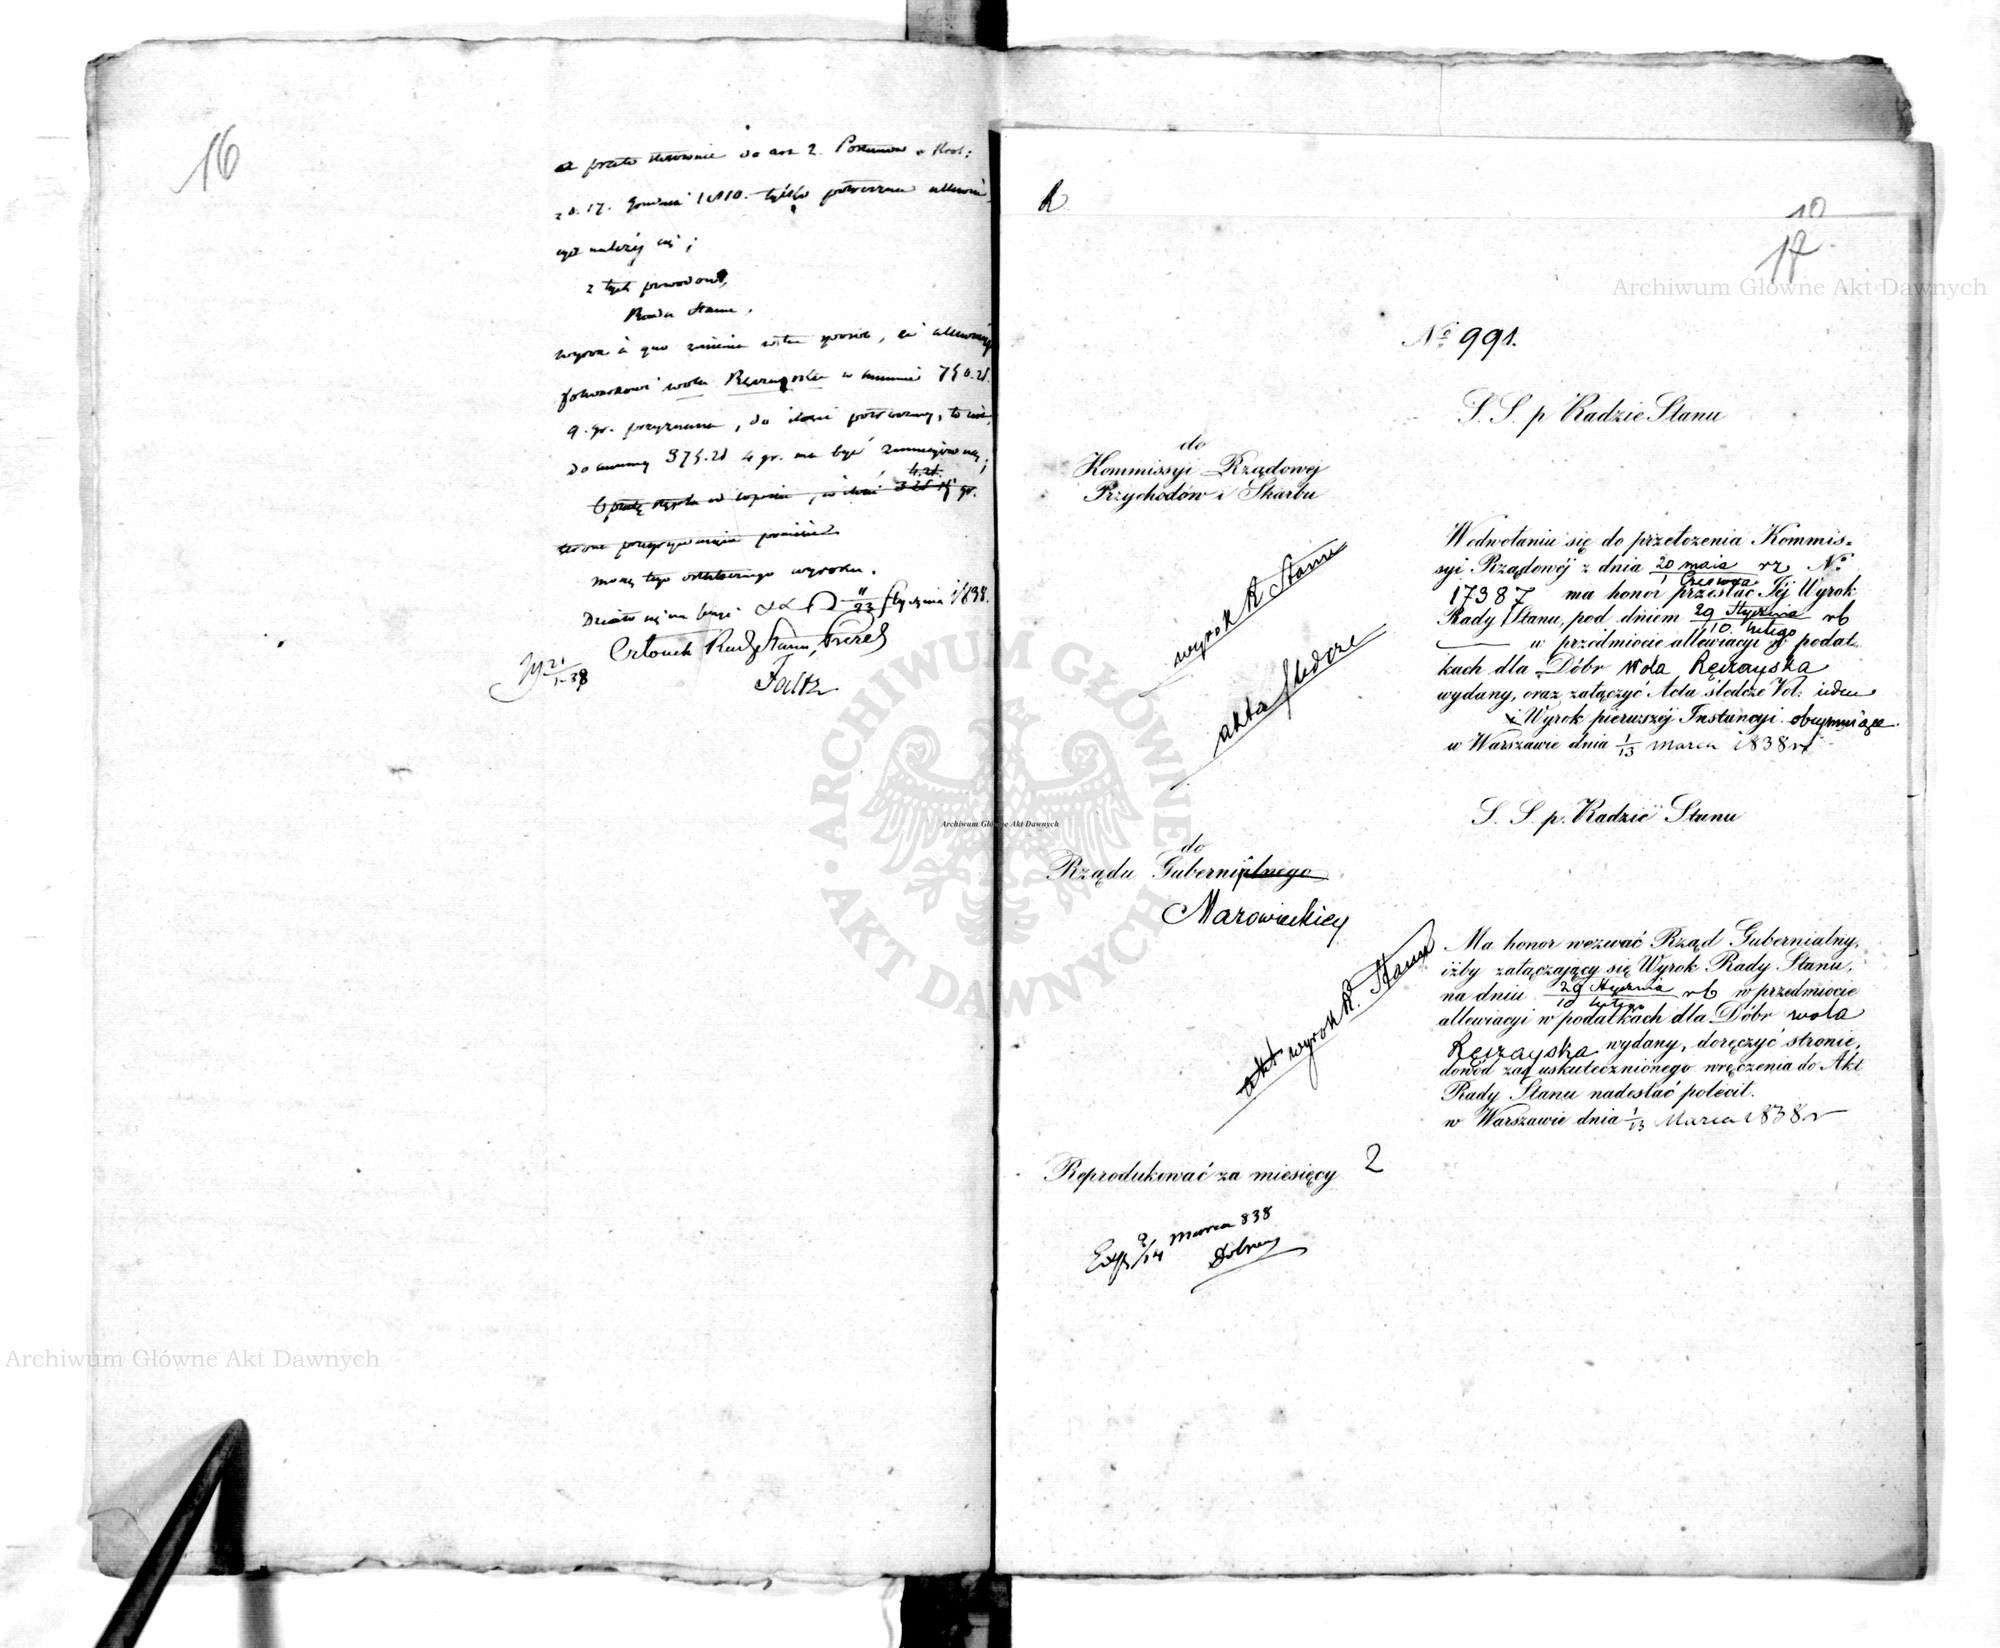 16
a przeto stosownie do art 2. Postanow. Król:
z d. 17. Grudnia 1810. tylko
należy się;
z tych powodów,
Rada Stanu,
wyrok à quo zmienia w ten sposób, iż
folwarkowi Wola Ręczayska w summie 750. zł.
9. gr. przyznana, do ilości połowy, to iest
do summy 375. zł 4 gr. ma być zmnieyszoną;
4. zł.
mocą tego ostatecznego wyroku.
Działo się na Sessyi 11/23 Stycznia 1838.
Członek Rady Stanu, Prezes
21/1 38
10
17
Archiwum Główne Akt Dawnych
No 991.
S. S. p Radzie Stanu
do
Kommissyi Rządowej
Przychodów i Skarbu
wyrok R Stanu
akta śledcze
W odwołaniu się do przełożenia Kommis=
syi Rządowéj z dnia 20 maia / 1 Czerwca rz No
17387 ma honor przesłać Jéj Wyrok
Rady Stanu, pod dniem 29 Stycznia / 10. Lutego rb
w przedmiocie allewiacyi w podat
kach dla Dóbr Wola Ręczayska
wydany, oraz załączyć Acta śledcze Vol: ieden
i Wyrok pierwszéj Instancyi obeymuiące.
w Warszawie dnia 1/13 marca 1838 r
S. S. p. Radzie Stanu
do
Rządu Gubernialnego
Mazowieckiey
wyrok R. Stanu
Ma honor wezwać Rząd Gubernialny,
iżby załączający się Wyrok Rady Stanu,
na dniu 29 Stycznia / 10 Lutego rb w przedmiocie
allewiacyi w podatkach dla Dóbr Wola
Ręczayska wydany, doręczyć stronie,
dowód zaś uskutecznionego wręczenia do Akt
Rady Stanu nadesłać polecił.
w Warszawie dnia 1/13 Marca 1838 r
Reprodukować za miesięcy 2
Exp 2/14 marca 838
Archiwum Główne Akt Dawnych
ARCHIWUM GŁÓWNE AKT DAWNYCH
Archiwum Główne Akt Dawnych